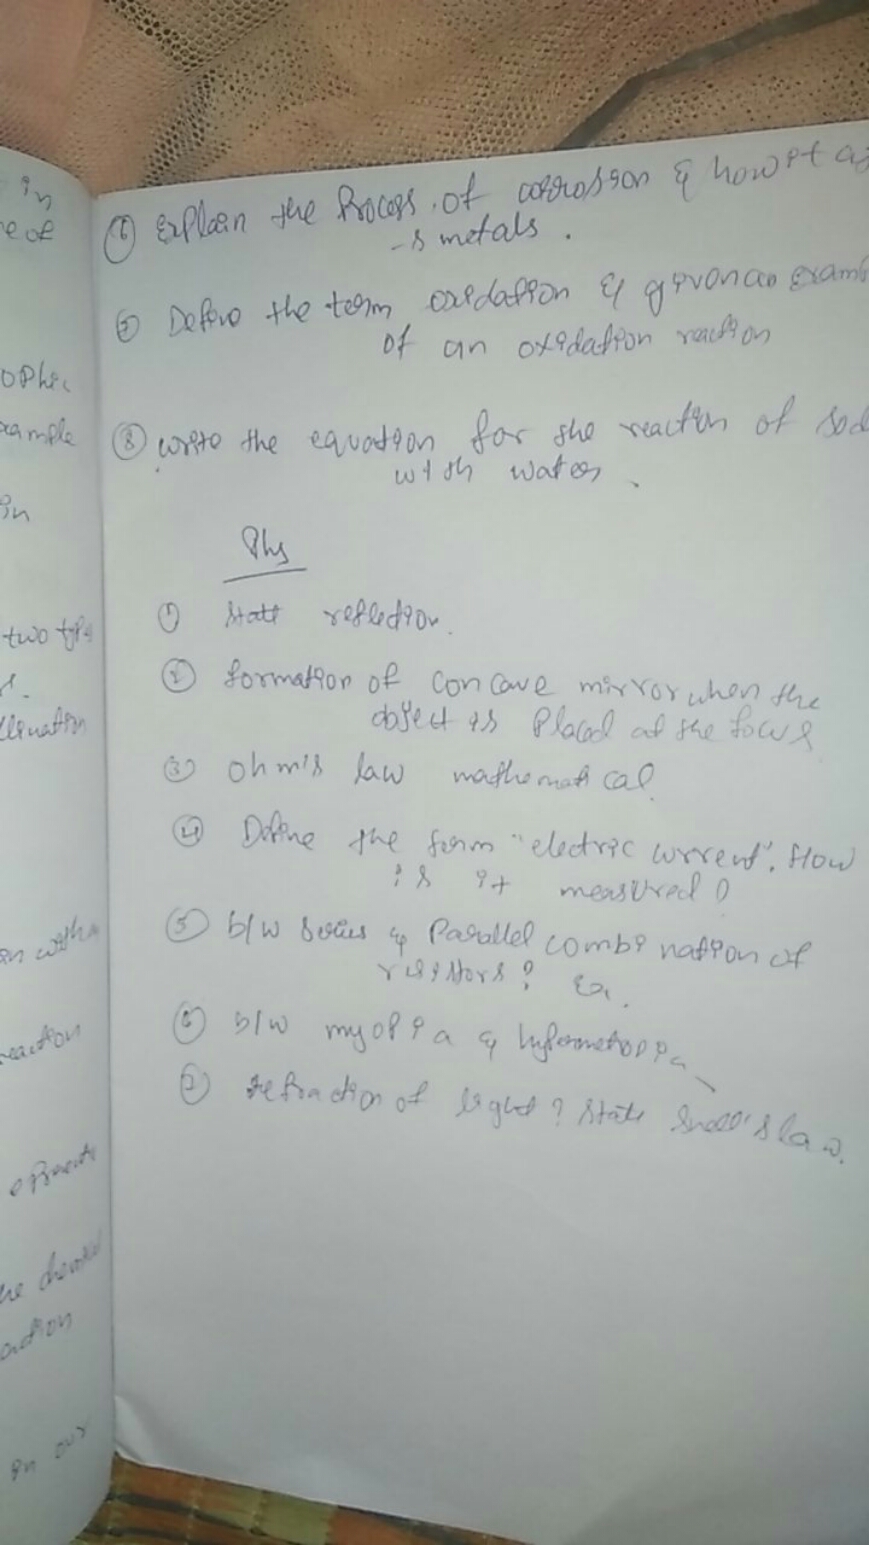 in
e of
ophic
xample
in
two typs
lination
on with a
reaction
he chemical
action
in our
⑥ Explain the Process of corrosion & how it a
-s metals.
⑦ Define the term oxidation & given an exam
of an oxidation reaction
⑧ write the equation for the reaction of sod
with water.
Phy
① State reflection.
② formation of concave mirror when the
object is Placed at the focus
③ ohm's law mathematical
④ Define the term "electric current". How
is it measured?
⑤ b/w series & Parallel combination of
resistors? Ex.
⑥ b/w myopia & hypermetropia
⑦ refraction of light? State Snell's law.